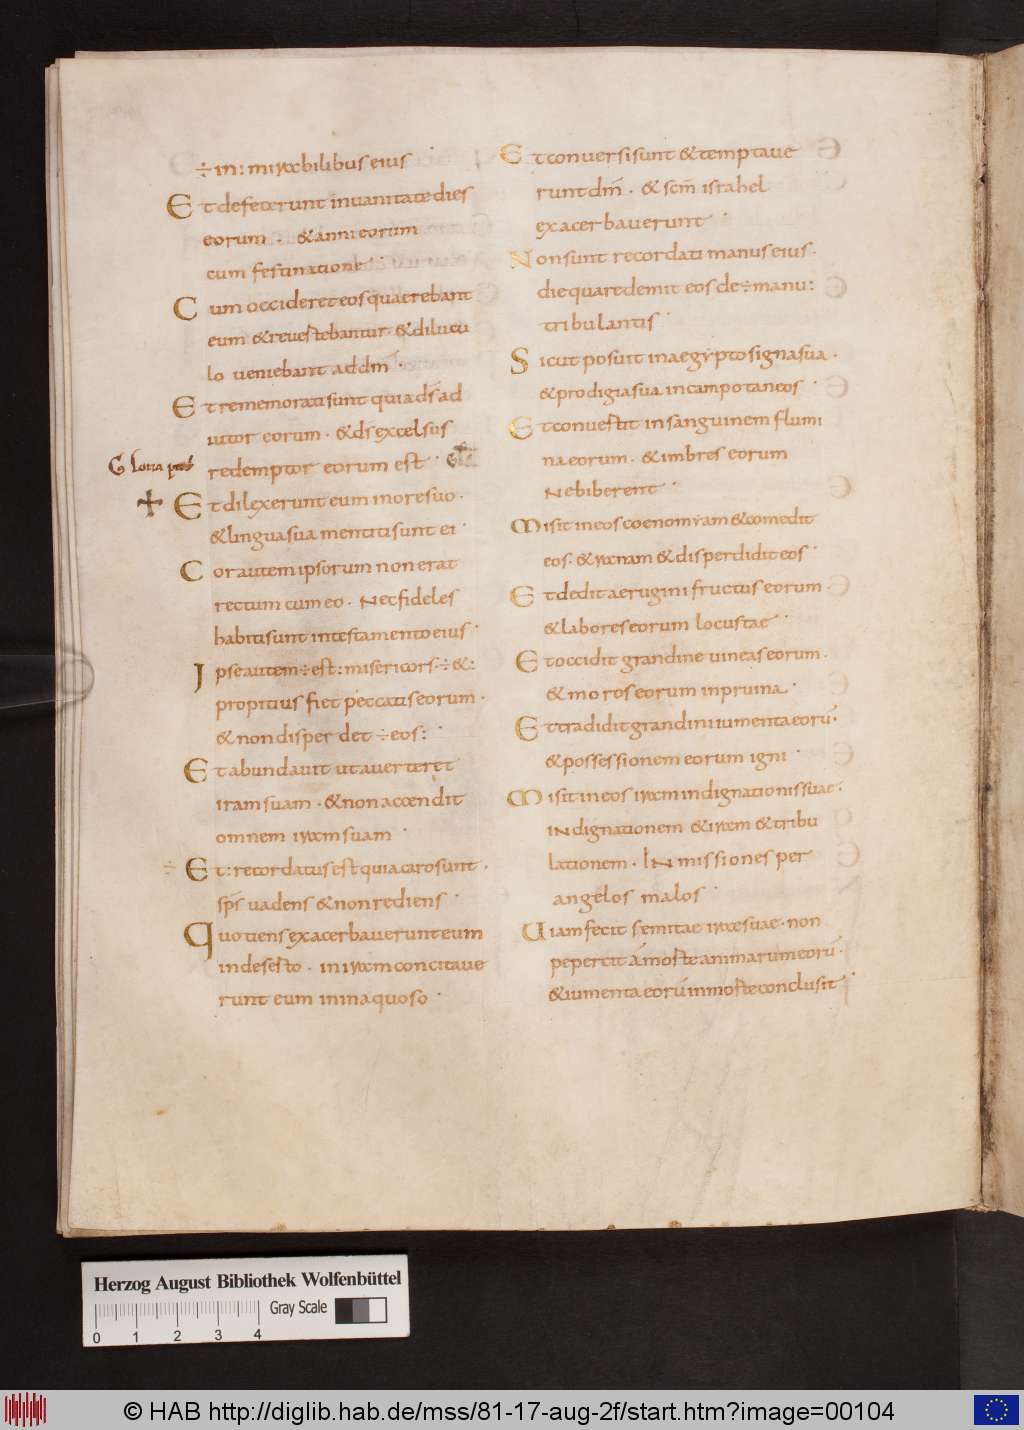 ÷ in: mirabilibus eius
Et defecerunt in vanitate dies
eorum · & anni eorum
cum festinatione ·
Cum occideret eos quaerebant
eum & revertebantur · & dilucu
lo veniebant ad dm̄ ·
Et rememorati sunt quia ds̄ ad
iutor eorum · & ds̄ excelsus
redemptor eorum est ·
Gloria patri
Et dilexerunt eum in ore suo ·
& lingua sua mentiti sunt ei ·
Cor autem ipsorum non erat
rectum cum eo · Nec fideles
habiti sunt in testamento eius ·
Ipse autem ÷ est: misericors · ÷ &:
propitius fiet peccatis eorum ·
& non disperdet ÷ eos: ·
Et abundavit ut averteret
iram suam · & non accendit
omnem iram suam ·
÷ Et: recordatus est quia caro sunt ·
sps̄ vadens & non rediens ·
Quotiens exacerbaverunt eum
in deserto · in iram concitave
runt eum in inaquoso ·
Et conversi sunt & temptave
runt dm̄ · & scm̄ israhel
exacerbaverunt ·
Non sunt recordati manus eius ·
die qua redemit eos de ÷ manu:
tribulantis ·
Sicut posuit in aegypto signa sua ·
& prodigia sua in campo taneos ·
Et convertit in sanguinem flumi
na eorum · & imbres eorum
Ne biberent ·
Misit in eos coenomyam & comedit
eos · & ranam & disperdidit eos ·
Et dedit aerugini fructus eorum ·
& labores eorum locustae ·
Et occidit grandine vineas eorum ·
& moros eorum in pruina ·
Et tradidit grandini iumenta eorū ·
& possessionem eorum igni ·
Misit in eos iram indignationis suae ·
INdignationem & iram & tribu
lationem · INmissiones per
angelos malos ·
Viam fecit semitae irae suae · non
pepercit a morte animarum eorū ·
& iumenta eorū in morte conclusit ·
Herzog August Bibliothek Wolfenbüttel
Gray Scale
0 1 2 3 4
© HAB http://diglib.hab.de/mss/81-17-aug-2f/start.htm?image=00104